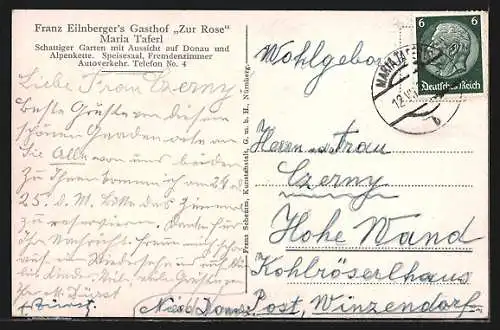 Franz Eilnberger's Gasthof „Zur Rose"
Maria Taferl
Schattiger Garten mit Aussicht auf Donau und
Alpenkette. Speisesaal, Fremdenzimmer
Autoverkehr. Telefon No. 4
Liebe Frau Czerny
Beste Grüße von diesem
schönen Gnadenorte an
Sie Alle von uns beiden
Zu Ihnen kommen am 24
25. d. M. Bitte das Zimmer
zu reservieren. Danke für
Ihre Nachricht freuen
auf ein Wiedersehen
viele Grüße
Franz Schemm, Kunstanstalt, G. m. b. H., Nürnberg.
6 6
Deutsches Reich
MARIA TAFERL
12
b
Wohlgeboren
Herrn u Frau
Czerny
Hohe Wand
Kohlröserlhaus
Post, Winzendorf
Nied Donau